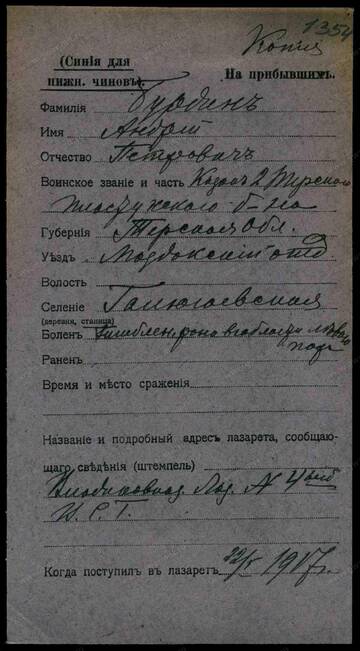 1354
Копія
(Синія для
нижн. чиновъ).
На прибывшихъ.
Фамилія Бурдинъ
Имя Андрей
Отчество Петровичъ
Воинское званіе и часть Казак 2 Терского
б-на
Губернія Терская Обл.
Уѣздъ Моздокскій отд
Волость
Селеніе Галюгаевская
(деревня, станица)
Боленъ Ушиблен. рана в области лѣваго
Раненъ
Время и мѣсто сраженія
Названіе и подробный адресъ лазарета, сообщаю-
щаго свѣдѣнія (штемпель)
Владикавказ. Лаз. № 4
Когда поступилъ въ лазаретъ 22/V 1917 г.